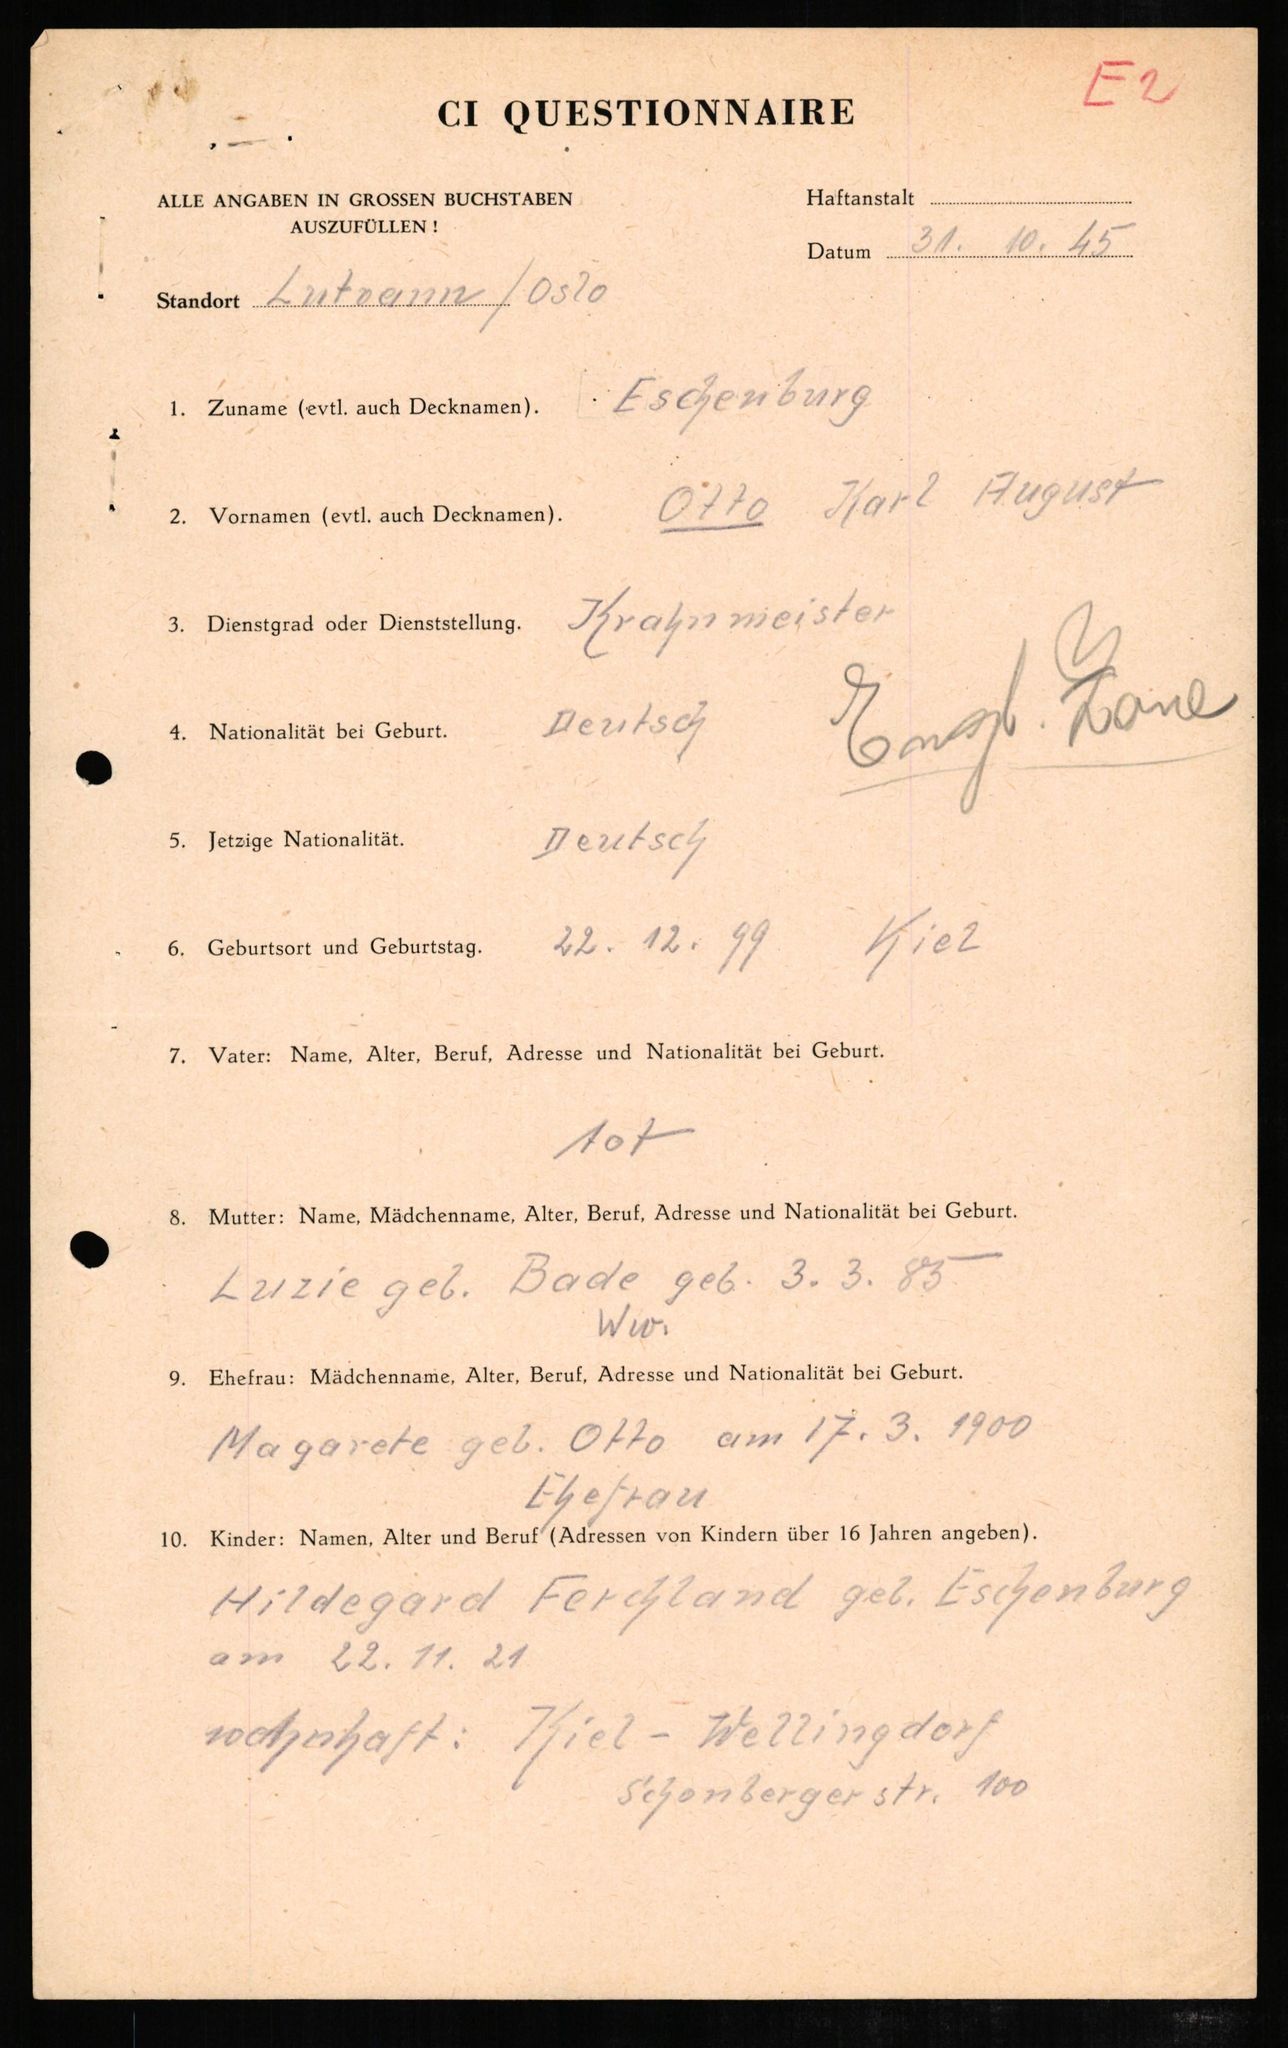 E2
CI QUESTIONNAIRE
ALLE ANGABEN IN GROSSEN BUCHSTABEN
AUSZUFÜLLEN!
Haftanstalt
Datum 31. 10. 45
Standort Lutvann / Oslo
1. Zuname (evtl. auch Decknamen). Eschenburg
2. Vornamen (evtl. auch Decknamen). Otto Karl August
3. Dienstgrad oder Dienststellung. Krahnmeister
4. Nationalität bei Geburt. Deutsch
Engl. Zone
5. Jetzige Nationalität. Deutsch
6. Geburtsort und Geburtstag. 22. 12. 99 Kiel
7. Vater: Name, Alter, Beruf, Adresse und Nationalität bei Geburt.
tot
8. Mutter: Name, Mädchenname, Alter, Beruf, Adresse und Nationalität bei Geburt.
Luzie geb. Bade geb. 3. 3. 85
Ww.
9. Ehefrau: Mädchenname, Alter, Beruf, Adresse und Nationalität bei Geburt.
Magarete geb. Otto am 17. 3. 1900
Ehefrau
10. Kinder: Namen, Alter und Beruf (Adressen von Kindern über 16 Jahren angeben).
Hildegard Ferchland geb. Eschenburg
am 22. 11. 21
wohnhaft: Kiel - Wellingdorf
Schonbergerstr. 100